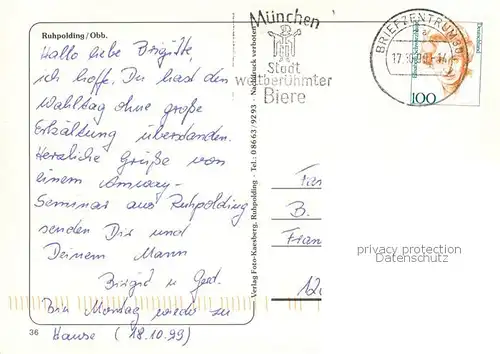 Ruhpolding / Obb.
Hallo liebe Brigitte,
ich hoffe, Du hast den
Wahltag ohne große
Erkältung überstanden.
Herzliche Grüße von
einem Amway-
Seminar aus Ruhpolding
senden Dir und
Deinem Mann
Birgid u. Gerd.
Bin Montag wieder zu
Hause (18.10.99)
36
Verlag Foto-Kaesberg, Ruhpolding - Tel.: 08663/9293 - Nachdruck verboten
München
Stadt
weltberühmter
Biere
BRIEFZENTRUM
100
Deutschland
B.
privacy protection
Datenschutz